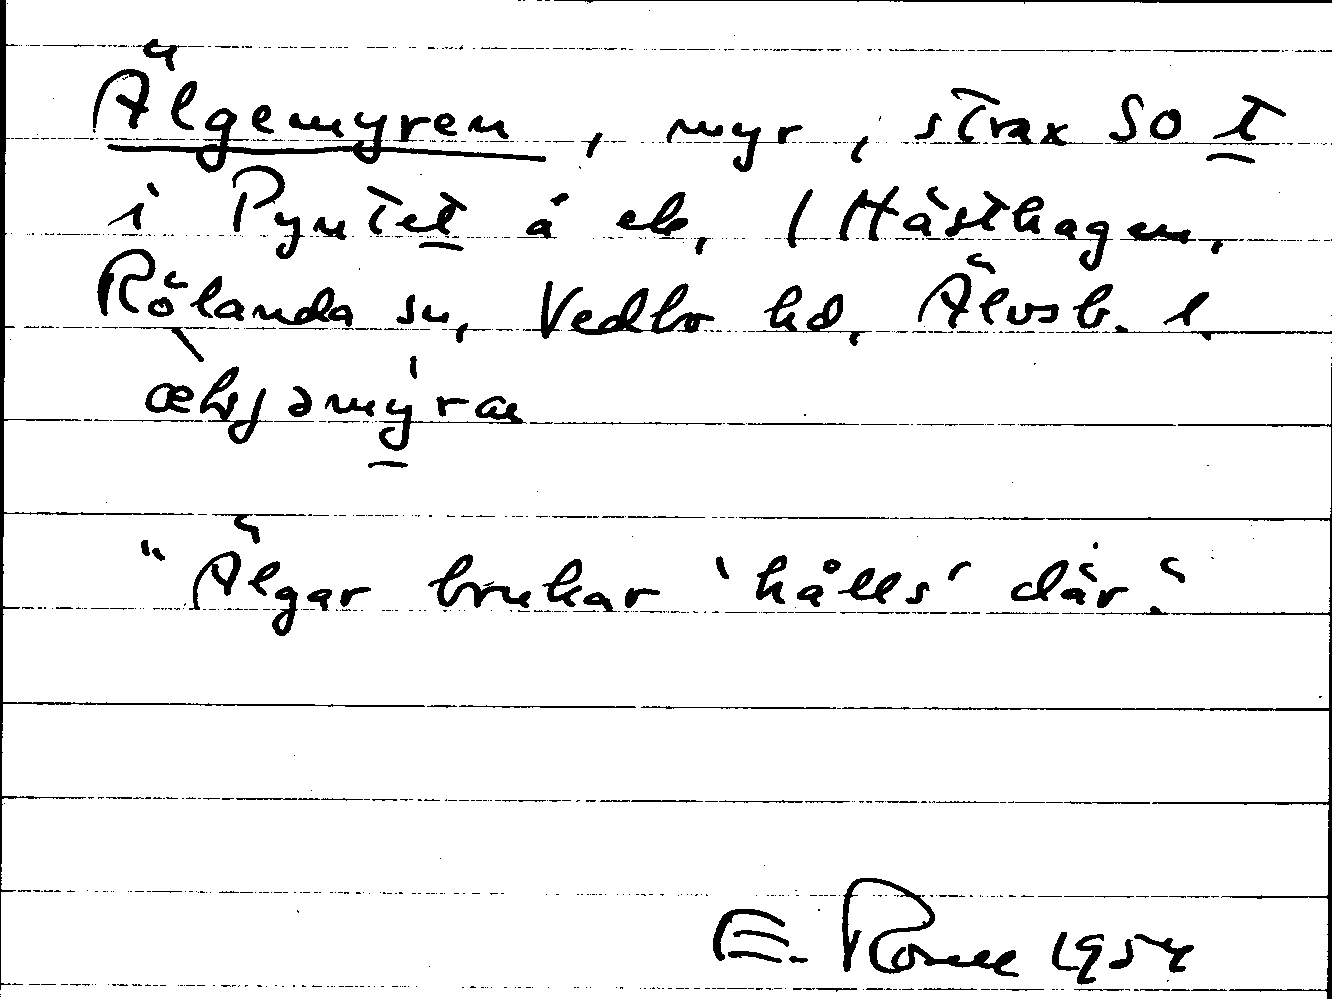 Älgemyren, myr, strax SO t
i Pyntet å ek, 1 Hästhagen,
Rölanda sn, Vedbo hd, Älvsb. l.
"Älgar brukar 'hålls' där."
E. 1954